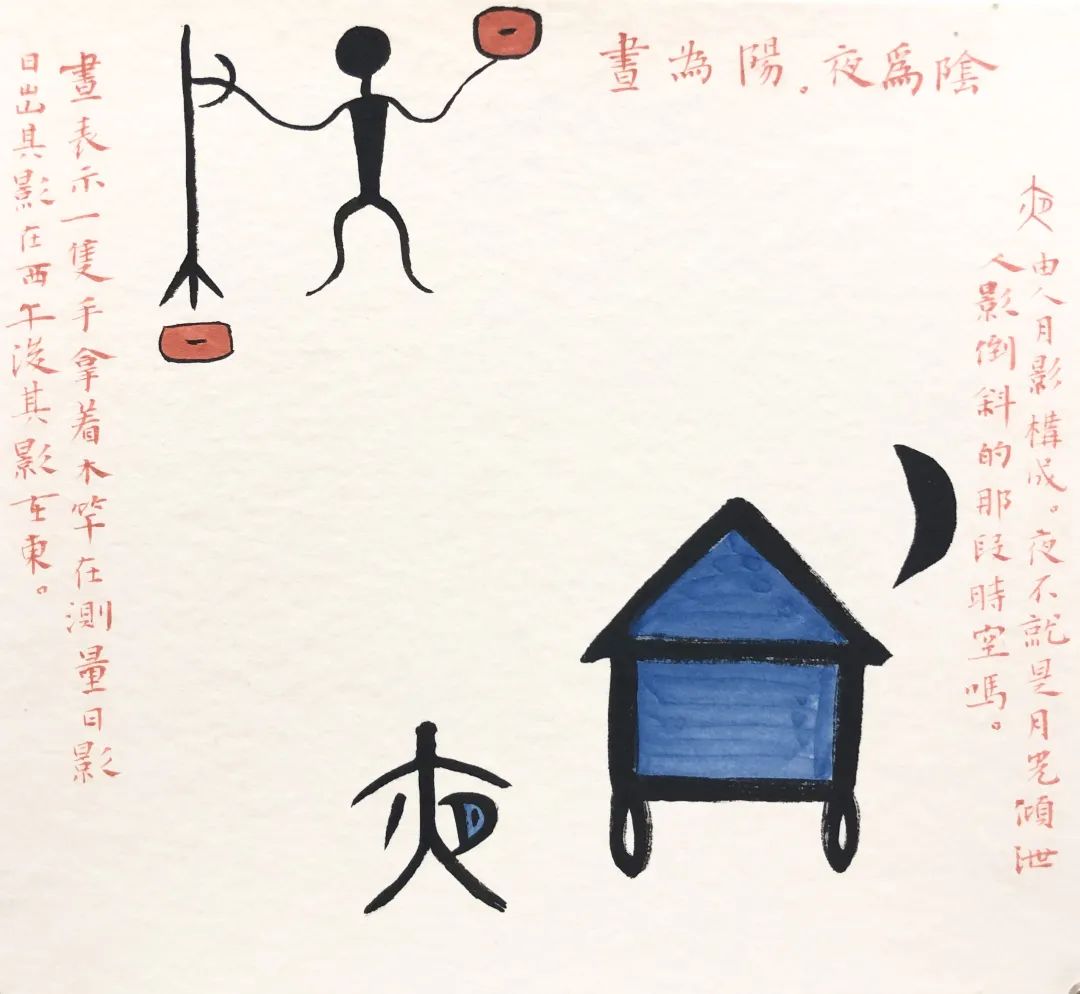 晝為陽。夜爲陰
夜由人月影構成。夜不就是月光傾泄
人影倒斜的那段時空嗎。
晝表示一隻手拿着木竿在測量日影
日出其影在西午後其影在東。